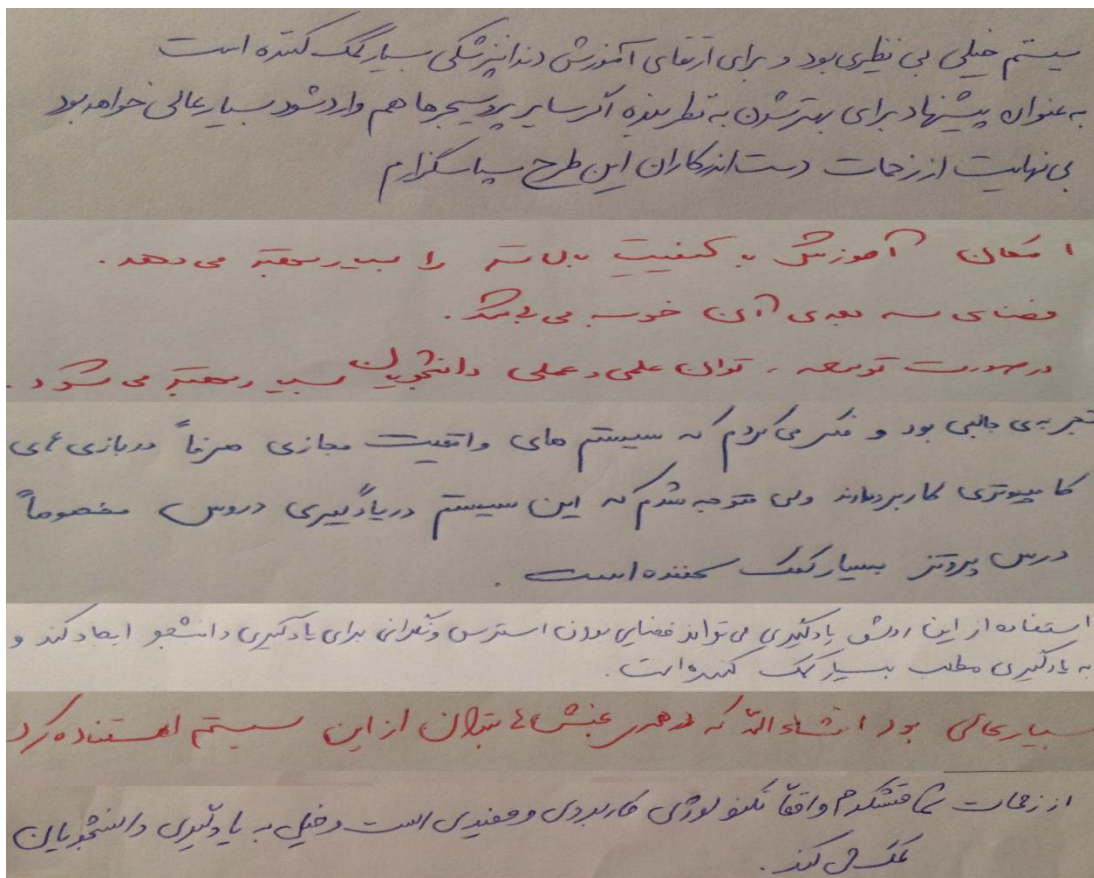 سیستم خیلی بی نظیری بود و برای ارتقای آموزش دندانپزشکی بسیار کمک کننده است
به عنوان پیشنهاد برای بهتر شدن به نظر بنده اگر سایر پروسیجرها هم وارد شود بسیار عالی خواهد بود
بی نهایت از زحمات دست اندرکاران این طرح سپاسگزارم
امکان آموزش با کیفیت بالاتر را بسیار میدهد.
فضای سه بعدی آن خوب می باشد.
در صورت توسعه، توان علمی و عملی دانشجویان بسیار بهتر می شود.
تجربه ی جالبی بود و فکر می کردم که سیستم های واقعیت مجازی صرفاً در بازی های
کامپیوتری کاربرد دارند ولی متوجه شدم که این سیستم در یادگیری دروس مخصوصاً
درس پروتز بسیار کمک کننده است.
استفاده از این روش یادگیری می تواند فضایی بدون استرس و نگرانی برای یادگیری دانشجو ایجاد کند و
به یادگیری مطلب بسیار کمک کننده است.
بسیار عالی بود انشاءالله که در همه بخش ها بتوان از این سیستم استفاده کرد
از زحمات شما متشکرم واقعاً تکنولوژی کاربردی و مفیدی است و خیلی به یادگیری دانشجویان
کمک می کند.